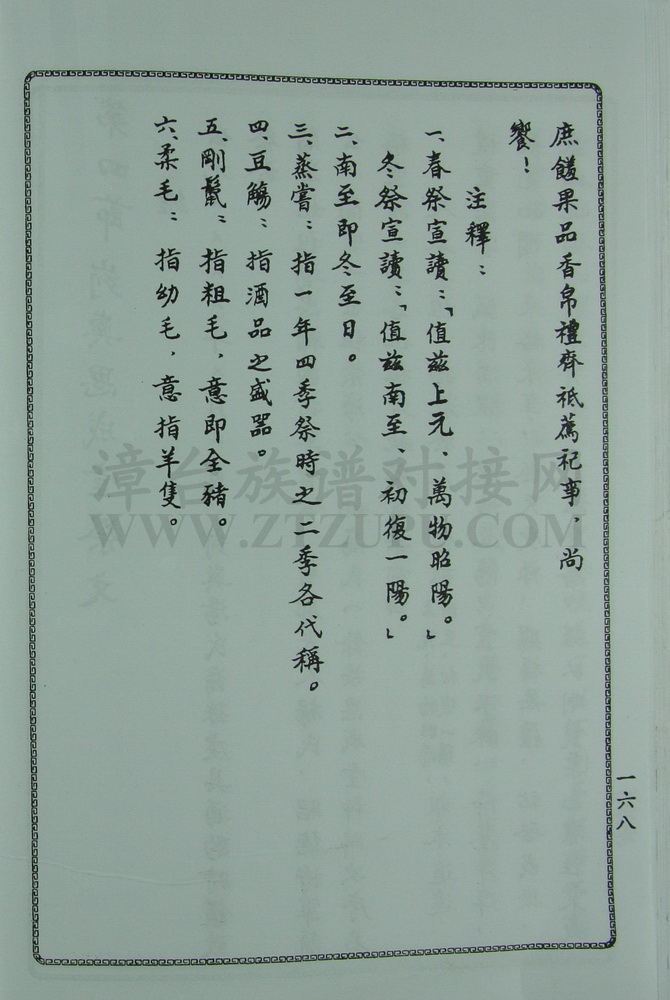 庶饈果品香帛禮齊祗薦祀事，尚
饗！
注釋：
一、春祭宣讀：「值兹上元、萬物昭陽。」
冬祭宣讀：「值兹南至、初復一陽。」
二、南至即冬至日。
三、蒸嘗：指一年四季祭時之二季各代稱。
四、豆觴：指酒品之盛器。
五、剛鬣：指粗毛，意即全豬。
六、柔毛：指幼毛，意指羊隻。
一六八
漳台族谱对接网
WWW.ZTZUPU.COM